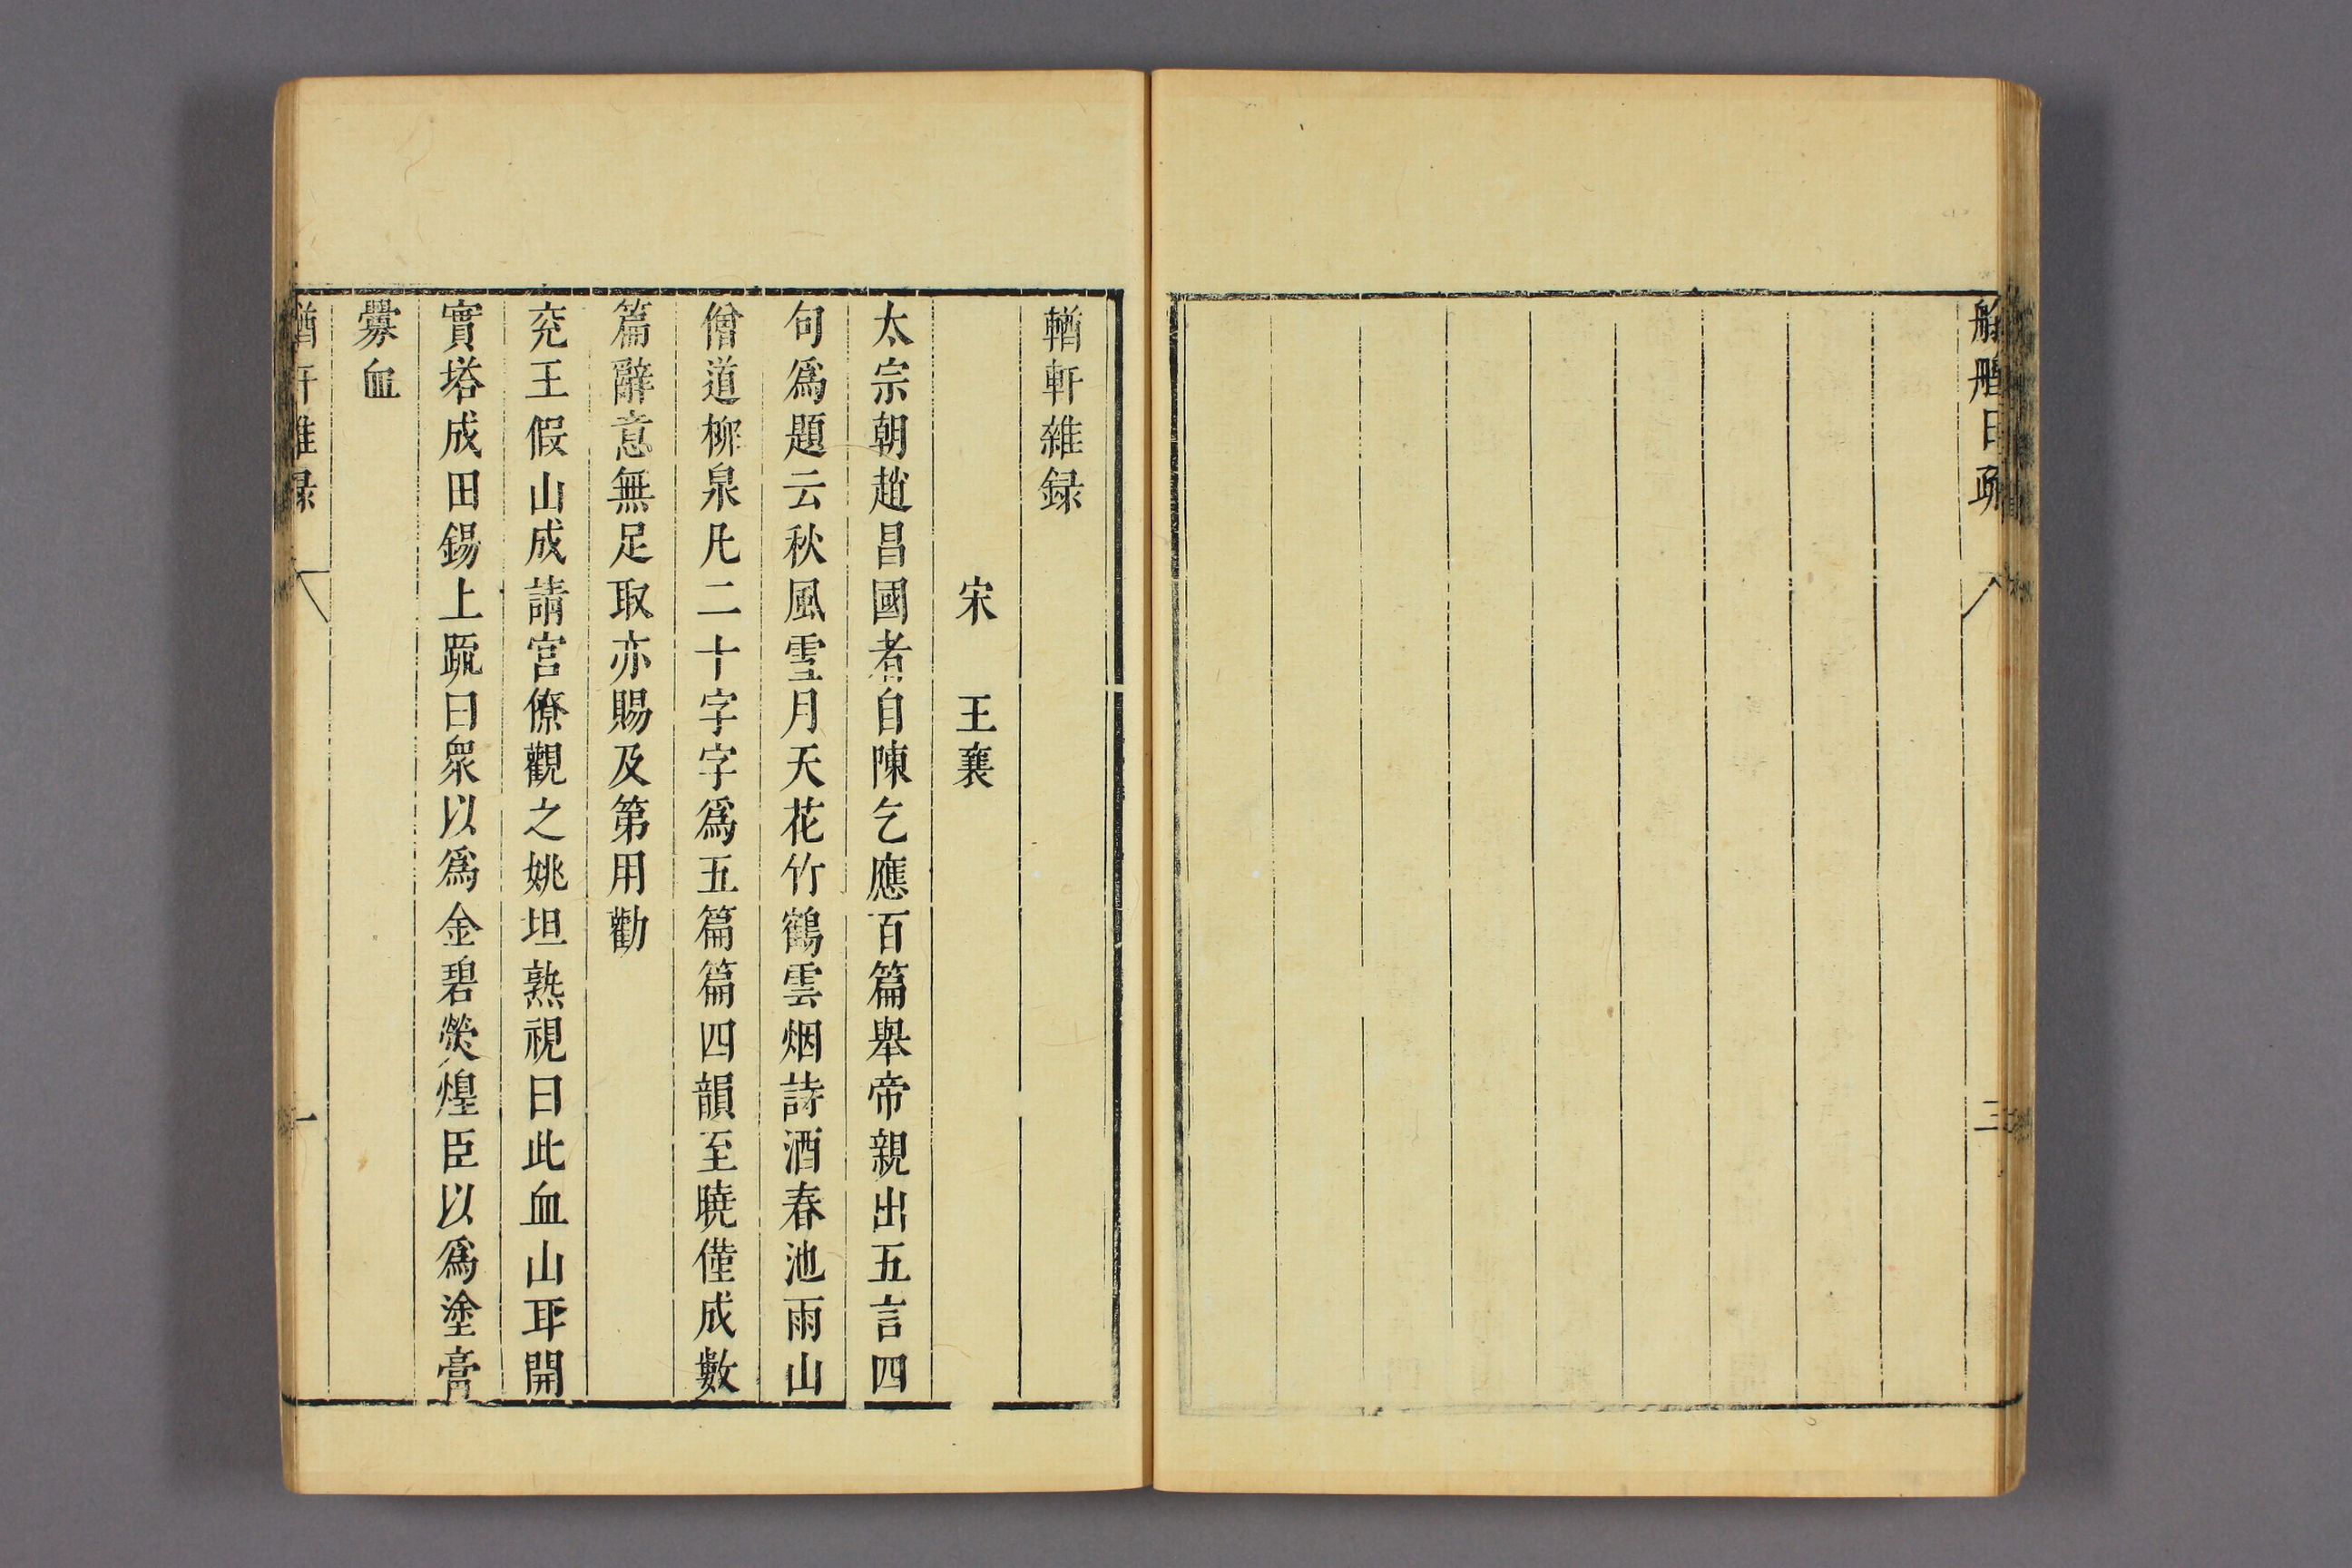 艅艎日疏
三
輶軒雜録
宋　王襄
太宗朝趙昌國者自陳乞應百篇舉帝親出五言四
句爲題云秋風雪月天花竹鶴雲烟詩酒春池雨山
僧道柳泉凡二十字字爲五篇篇四韻至曉僅成數
篇辭意無足取亦賜及第用勸
兖王假山成請宮僚觀之姚坦熟視曰此血山耳開
實塔成田錫上疏曰衆以爲金碧熒煌臣以爲塗膏
釁血
輶軒雜録
一